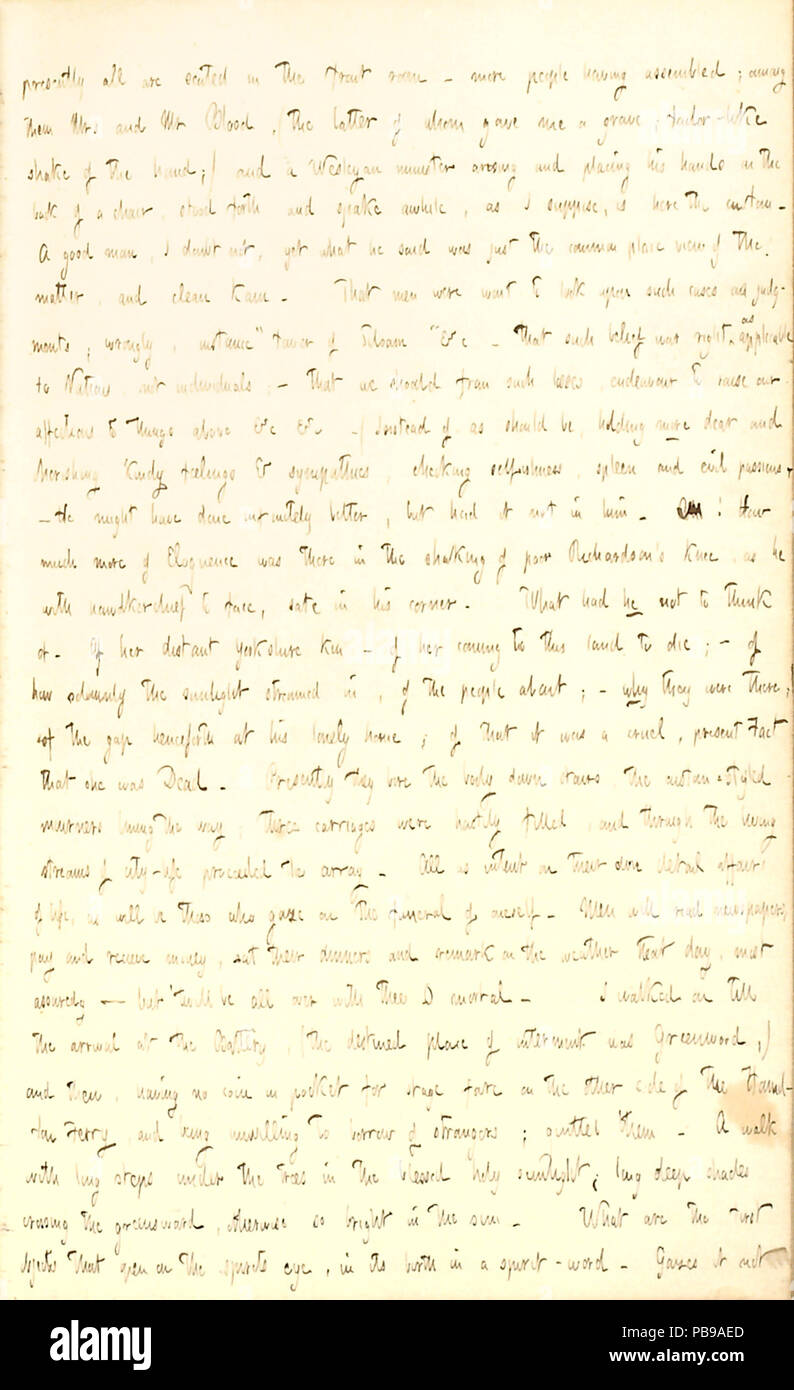 presently all are seated in the front room - more people having assembled; among
them Mrs and Mr Blood, (the latter of whom gave me a grave, tailor-like
shake of the hand;) and a Wesleyan minister arising and placing his hands on the
back of a chair, stood forth and spake awhile, as I suppose, is here the custom -
A good man, I doubt not, yet what he said was just the common place view of the
matter, and clean tame - That men were wont to look upon such cases as judg-
ments; wrongly, instance "tower of Siloam" &c - That such belief was right as applicable
to Nations, not individuals; - that we should from such losses, endeavour to raise our
affections to things above &c &c - (Instead of, as should be, holding more dear and
cherishing kindly feelings & sympathies, checking selfishness, spleen and evil passions,
- He might have done infinitely better, but had it not in him - ! How
much more of Eloquence was there in the shaking of poor Richardson's knee, as he
with handkerchief to face, sate in his corner - What had he not to think
of - Of her distant Yorkshire kin - of her coming to this land to die; - of
how solemnly the sunlight streamed in, of the people about; - why they were there;
- of the gap henceforth at his lonely home; of that it was a cruel, present Fact
that she was Dead - Presently they bore the body down stairs, the custom-styled
mourners lining the way; three carriages were hastily filled, and through the living
streams of city-life proceeded the array - All as intent on their own detail affairs
of life, as will be those who gaze on the funeral of oneself - Men will read newspapers,
pay and receive money, eat their dinners and remark on the weather that day, most
assuredly - but 'twill be all over with thee O mortal - I walked on till
the arrival at the Battery, (the destined place of interment was Greenwood,)
and then, having no coin in pocket for stage fare on the other side of the Hamil-
ton Ferry, and being unwilling to borrow of strangers; quitted them - A walk
with long steps under the trees in the blessed holy sunlight; long deep shades
crossing the greensward, otherwise so bright in the sun - What are the first
objects that open on the spirits eye, in its birth in a spirit-word - Gazes it not
alamy
Image ID: PB9AED
www.alamy.com